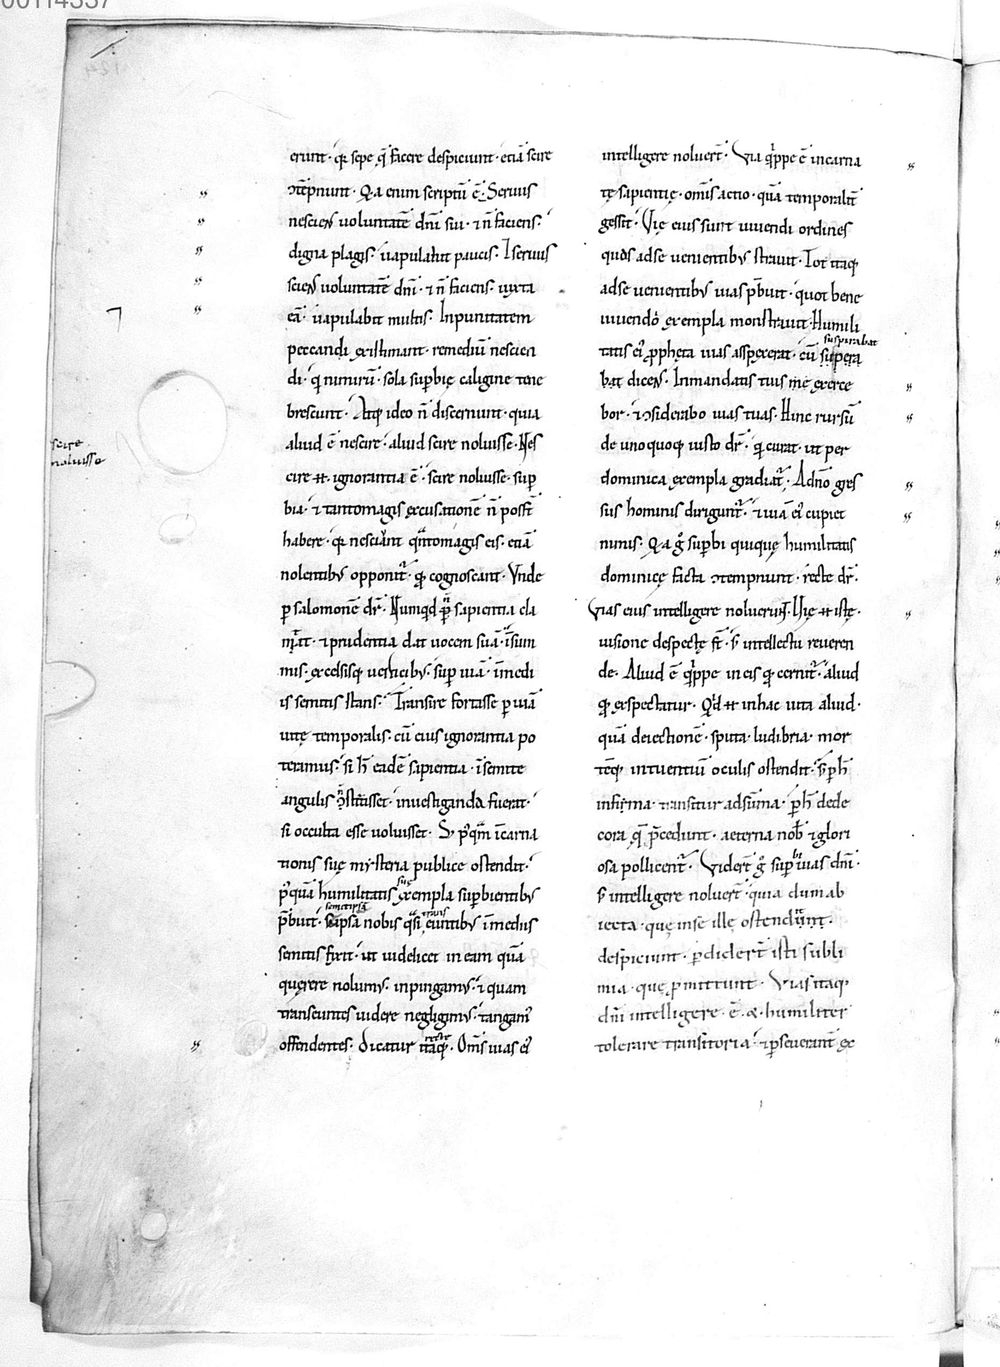 erunt· q̄ sepe q̄ facere despiciunt· etiā scire
ↄtēpnunt· Q̄a enim scriptū ē· Seruus
nesciens uoluntatē dn̄i sui· ⁊ n̄ faciens·
digna plagis· uapulabit paucis· I seruus
sciens uoluntatē dn̄i· ⁊ n̄ faciens· iuxta
eā· uapulabit multis· Inpunitatem
peccandi ęxistimant· remediū nescien
di· q̄ nimirū· sola supbię caligine tene
brescunt· Atq; ideo n̄ discernunt· quia
aliud ē nescire· aliud scire noluisse· Nes
scire
noluisse
cire ⁊ ignorantia ē· scire noluisse· sup
bia· ⁊ tantomagis excusationē n̄ posst̄
habere· q̄ nesciunt qn̄tomagis eis· etiā
nolentibus opponit̄· q̄ cognoscant· Vnde
p̱ salomonē dr̄· Numqd̄ n̄ sapientia cla
mat̄· ⁊ prudentia dat uocem suā· īsum
mis· excelsisq; uerticibus· sup uiā· īmedi
is semitis stans· Transire fortasse p̱ uiā
uitę temporalis· cū eius ignorantia po
teramus· si h̄ eadē sapientia· īsemitę
angulis ↄstitisset· inuestiganda fuerat·
si occulta esse uoluisset· S; p̄qm̄ īcarna
tionis suę mysteria publice ostendit·
p̄quā humilitatis suę exempla supbientibus
p̄buit· semetipsā nobis q̄si transeuntibus īmediis
semitis fixit· ut uidelicet in eam quā
quęrere nolumus· inpingamus· ⁊ quam
transeuntes uidere negligimus· tangam̄
offendentes· Dicatur itaq; recte· Oms̄ uias ei᷒
intelligere noluert̄· Via q̄ppe ē incarna
tę sapientię· omīs actio· quā temporalit̄
gessit· Vię eius sunt uiuendi ordines
quos adse uenientibus strauit· Tot itaq;
adse uenientibus uias p̄buit· quot bene
uiuendo exempla monstrauit· Humili
tatis ei᷒ p̱pheta uias asspexerat· cū suspirabat
bat dicens· Inmandatis tuis me exerce
bor· ⁊ ↄsiderabo uias tuas· Hinc rursū
de unoquoq; iusto dr̄· q̄ curat· ut per
dominica exempla gradiat̄· Adn̄o gres
sus hominis diriguntr̄· ⁊ uiā ei᷒ cupiet
nimis· Q̄a g̊ supbi quiquę humilitatis
dominicę facta ↄtempnunt· recte dr̄·
Vias eius intelligere noluerun̄t· Hę ⁊ istę·
uisione despectę st̄· s; intellectu reueren
de· Aliud ē q̄ppe in eis q̄ cernit̄· aliud
q̄ exspectatur· Qd̄ ⁊ in hac uita aliud·
quā deiectionē· sputa· ludibria· mor
tēq; intuentiū oculis ostendit· S; p̱ h̄
infirma· transitur adsūma· p̱ h̄ dede
cora q̄ p̄cedunt· aeterna nob̄ ⁊ glori
osa pollicent̄· Vidert̄ g̊ supbi uias dn̄i·
s; intelligere noluert̄· quia dum ab
iecta· quę inse illę ostendunt·
despiciunt· p̱didert̄ isti subli
mia· quę p̱mittunt· Vias itaq;
dn̄i intelligere· ē· &· humiliter
tolerare transitoria· ⁊ p̱seuerant̄ ex